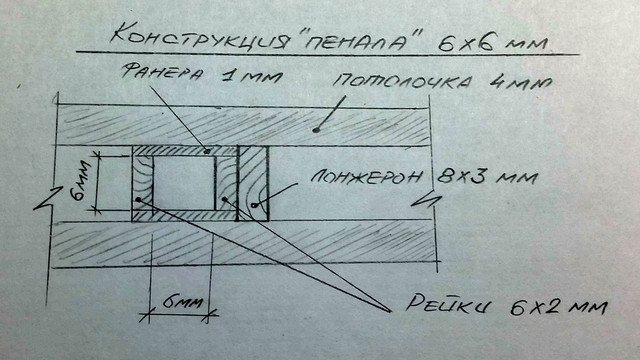 Конструкция "пенала" 6х6 мм
фанера 1мм
потолочка 4мм
6мм
лонжерон 8х3 мм
6мм
Рейки 6х2 мм